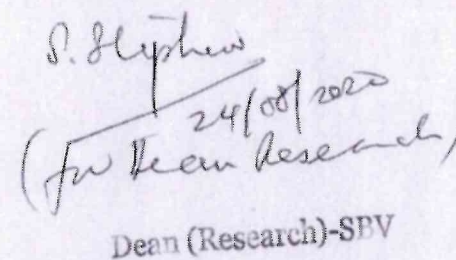 S. Stephen
24/08/2020
(for Dean Research)
Dean (Research)-SBV